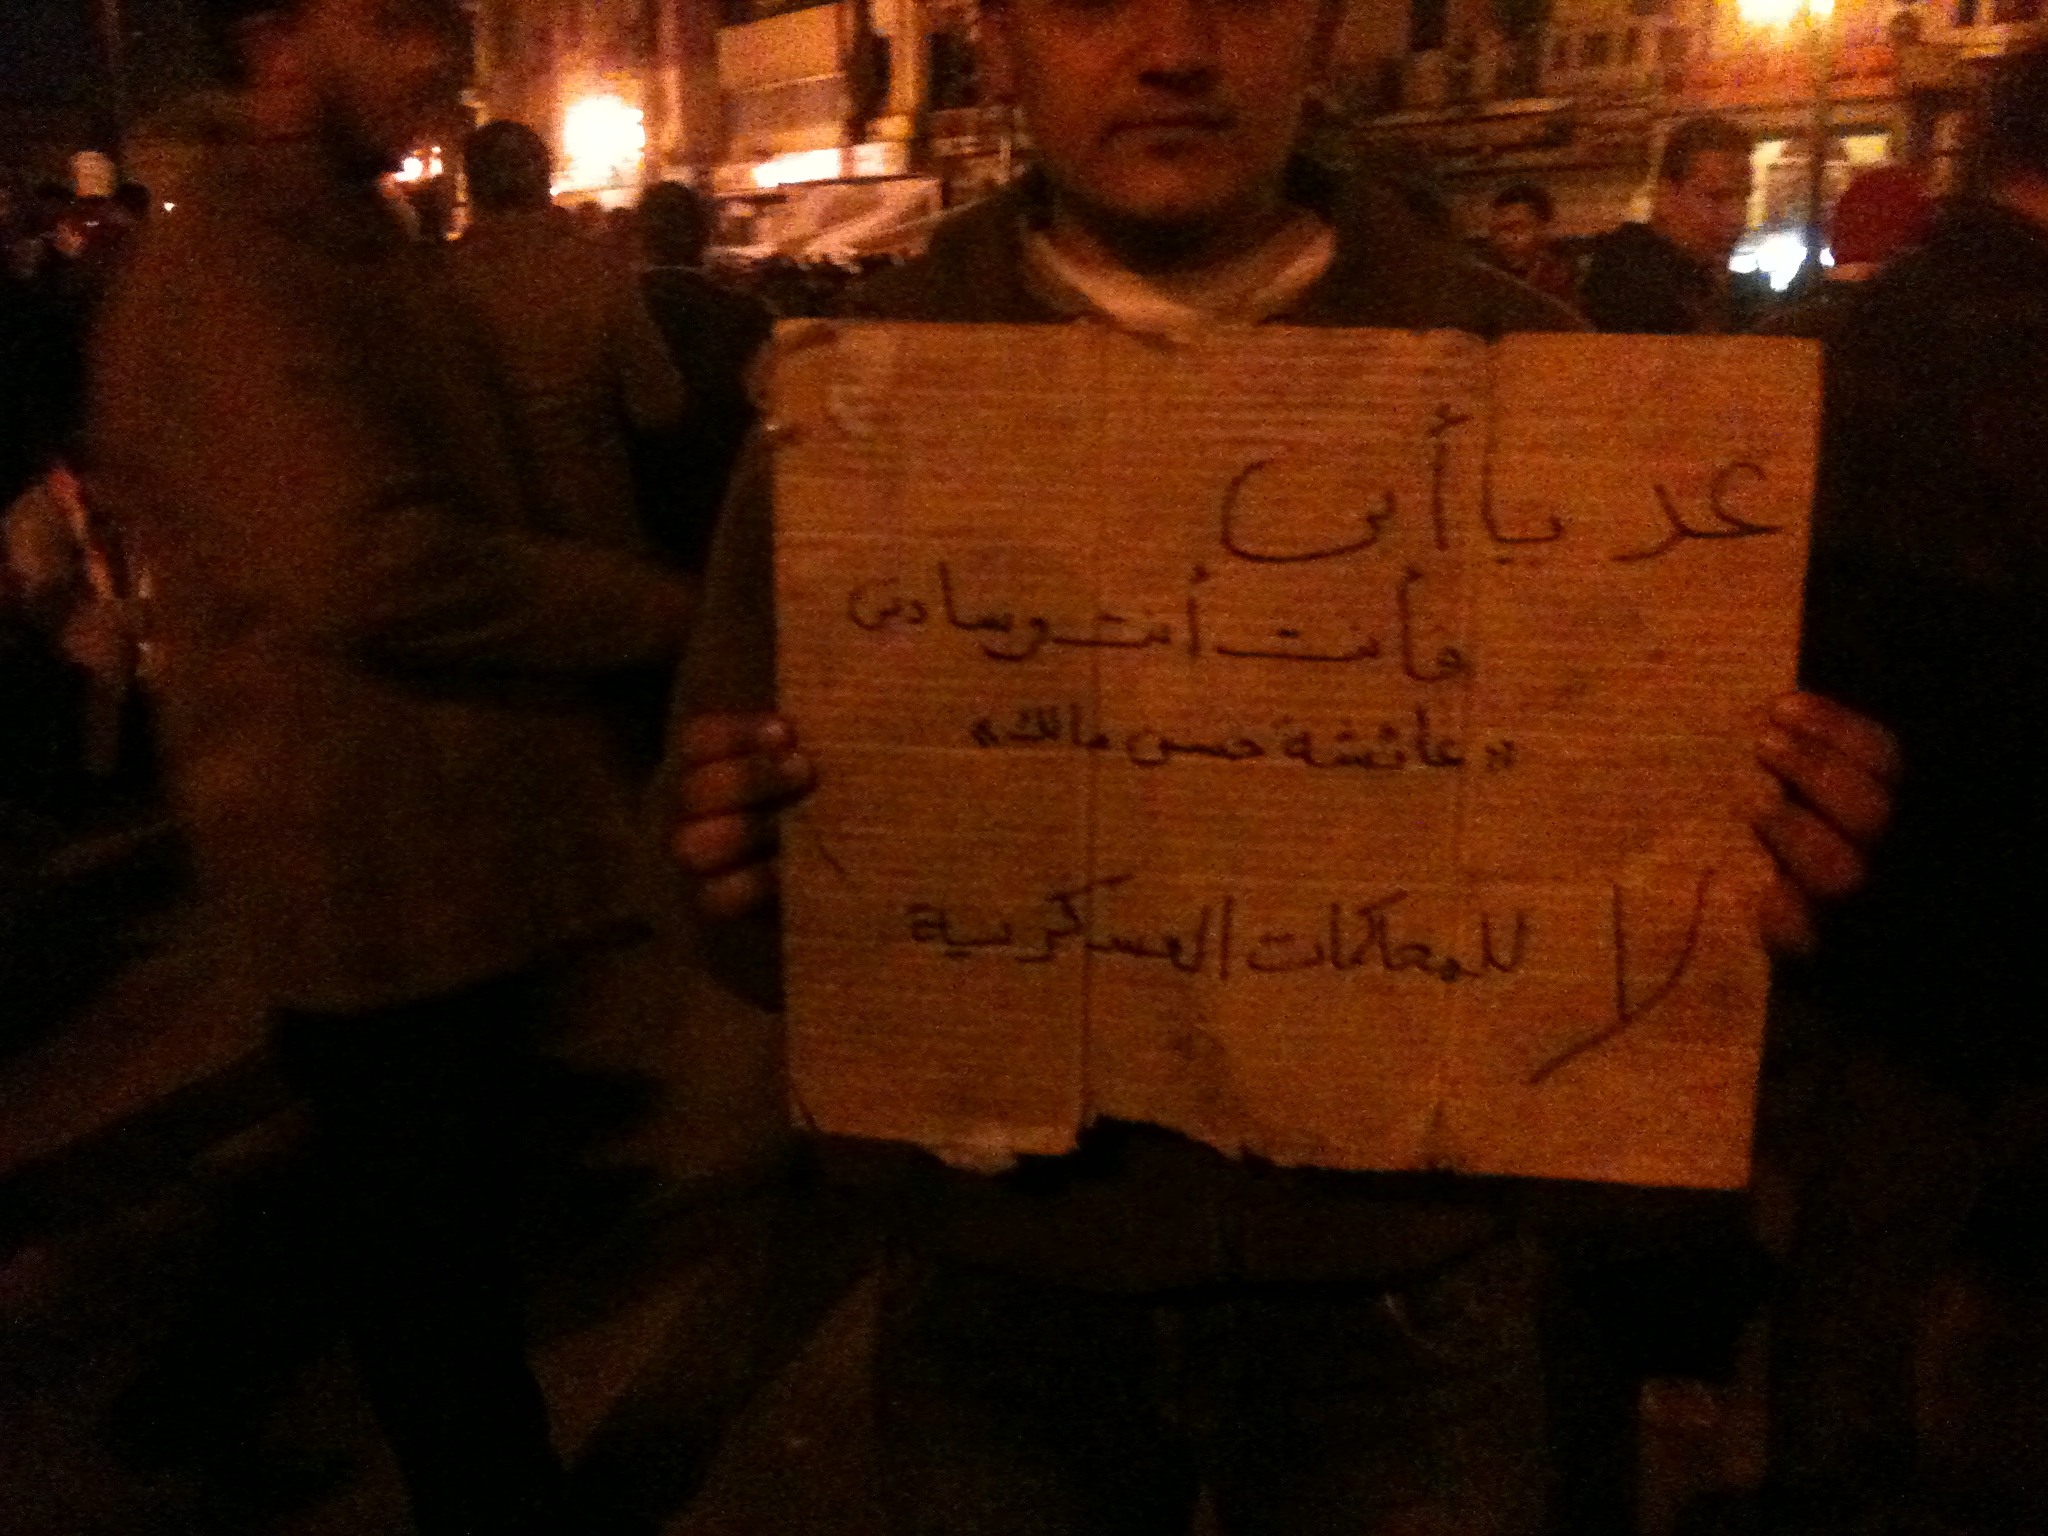 عد يا أبى
فأنت أنت وسادتى
«عائشة حسن مالك»
لا للمحاكمات العسكرية